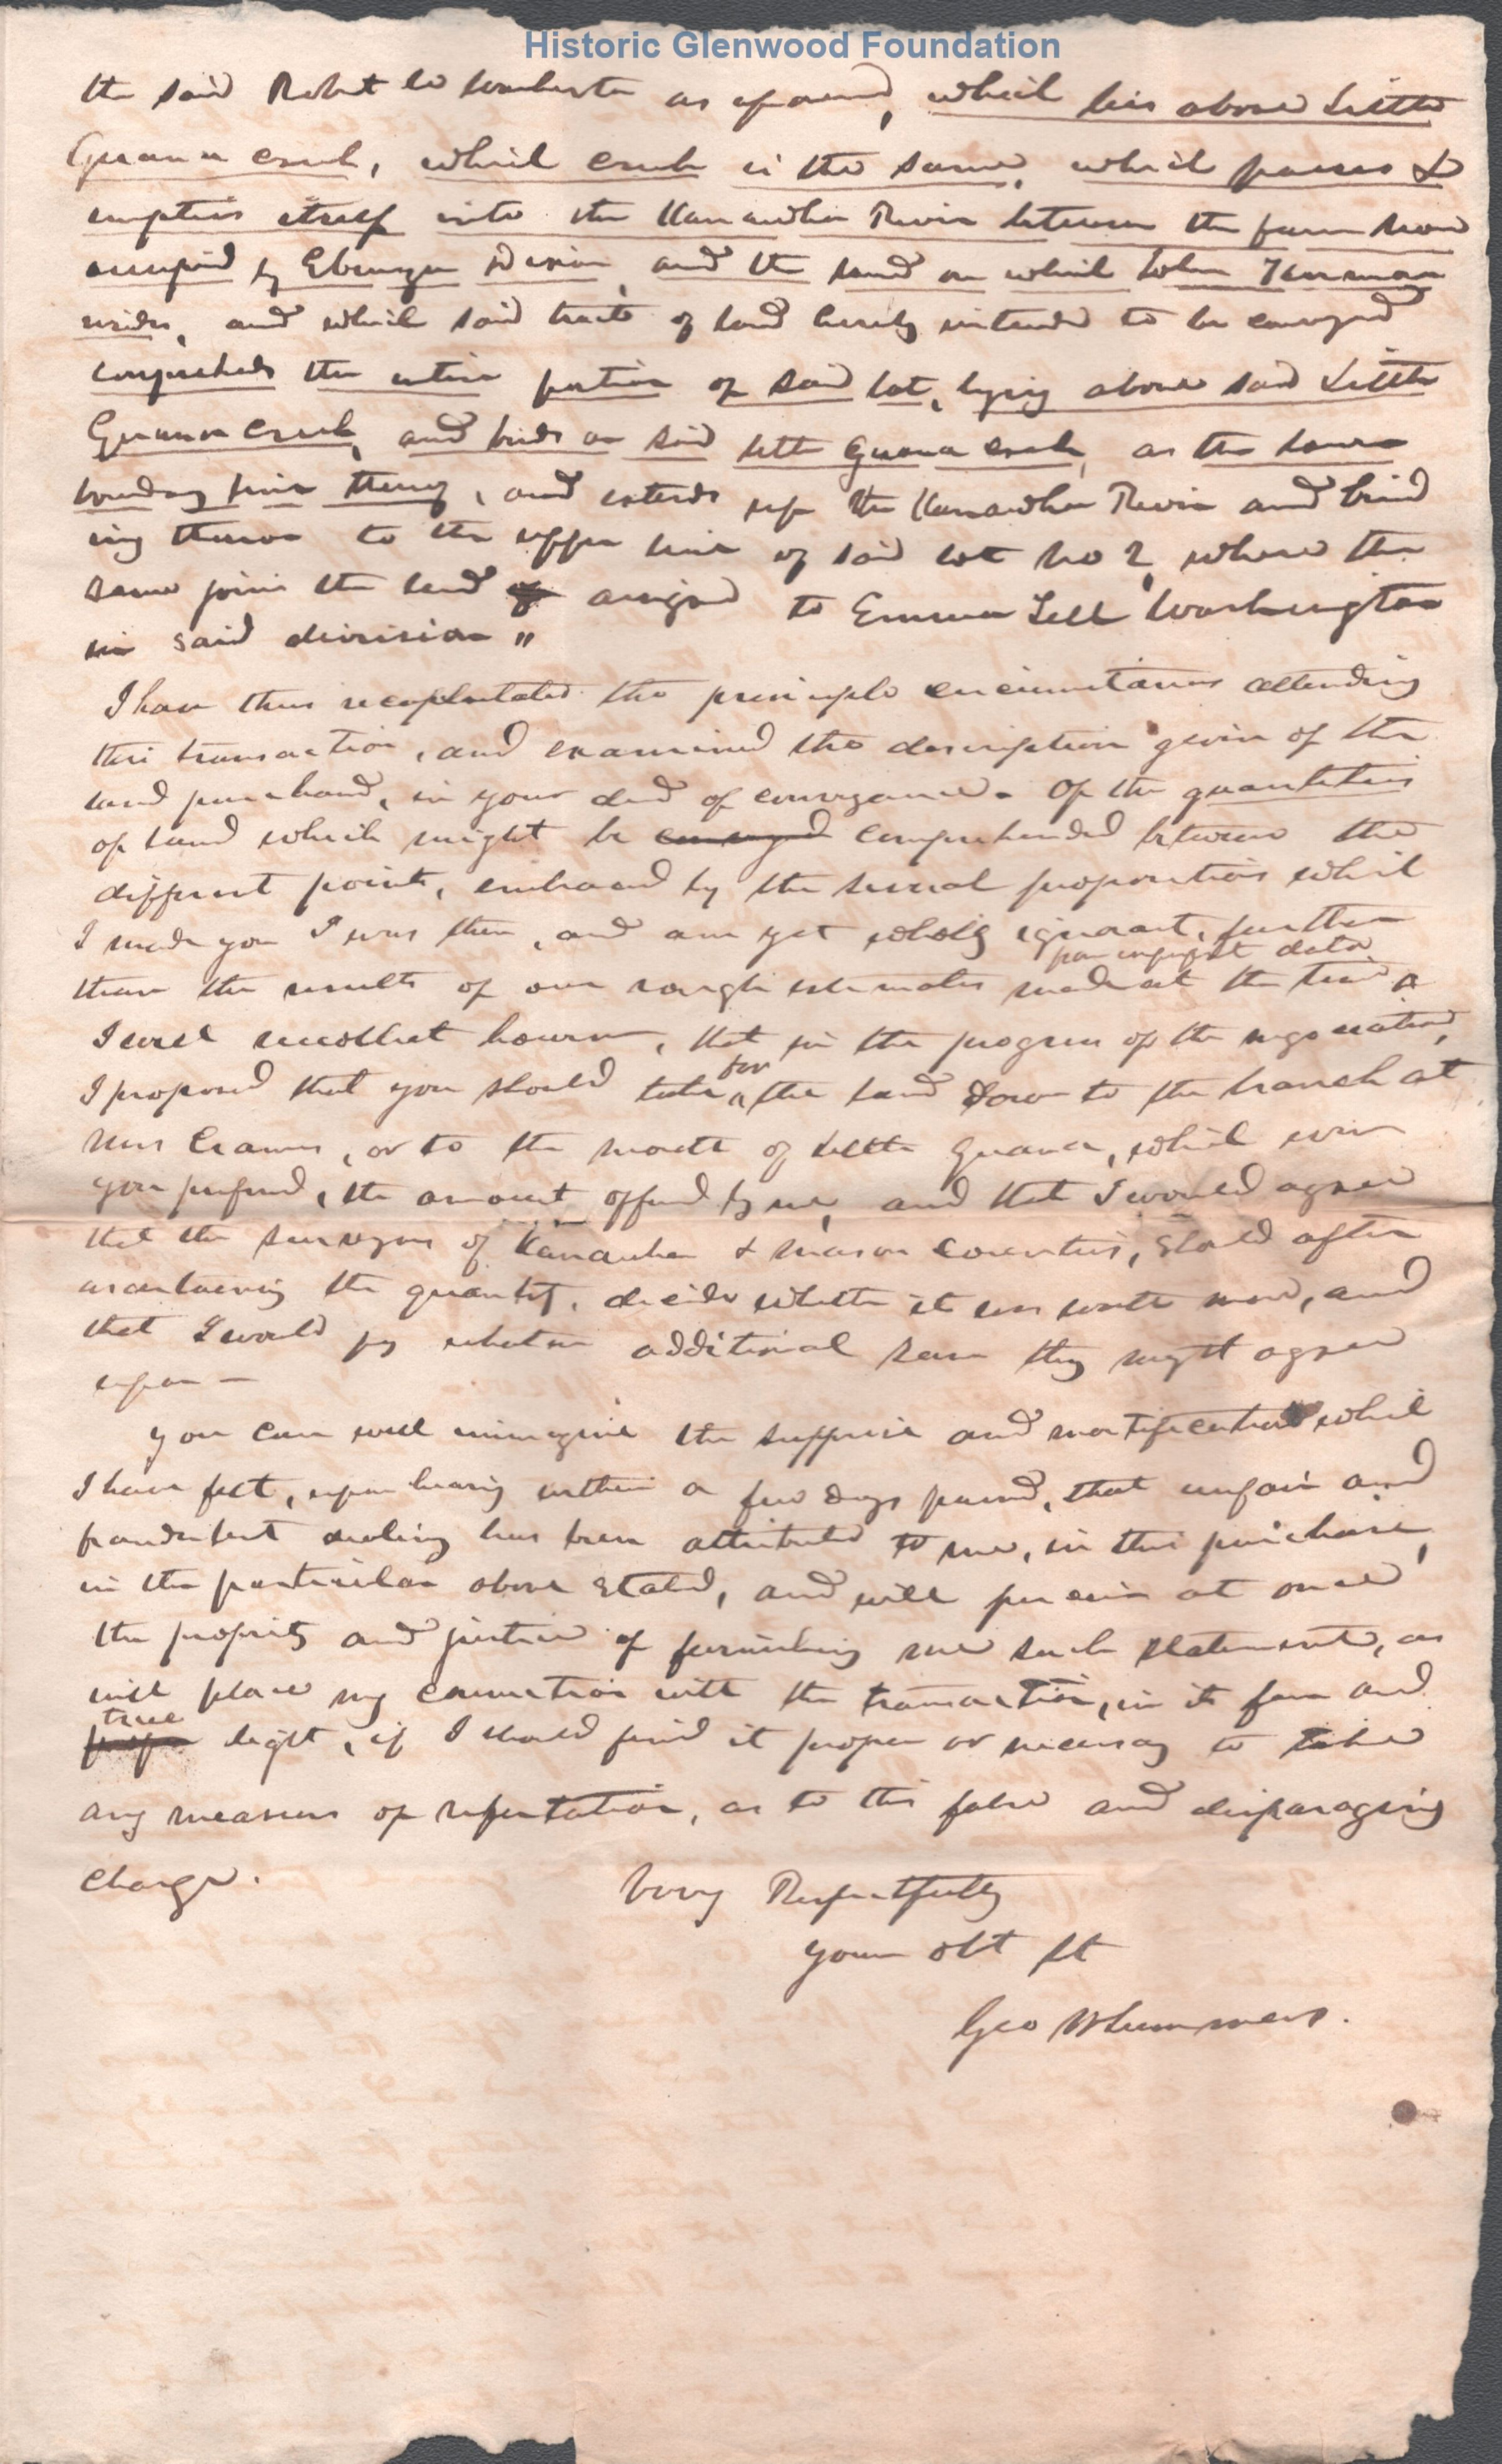 Historic Glenwood Foundation
the said Robert as aforesaid, which lies above Little
Guana creek, which creek is the same, which passes &
empties itself into the Kanawha River between the farm now
occupied by Ebenezer and the land on which John
resides, and which said tracts of land hereby intended to be conveyed
comprehends the entire portion of said lot, lying above said Little
Guana creek, and binds on said little Guana creek, as the lower
boundary line thereof, and extends up the Kanawha River and bind
ing thereon to the upper line of said lot no 2, where the
same joins the land of assigned to Emma Tell Washington
in said division "
I have thus recapitulated the principle circumstances attending
this transaction, and examined the description given of the
land purchased, in your deed of conveyance. Of the quantities
of land which might be conveyed comprehended between the
different points, embraced by the several propositions which
I made you I was then, and am yet wholly ignorant, further
than the results of our rough estimates made at the time
from imperfect data
I well recollect however, that in the progress of the negociation,
I proposed that you should take for the land down to the branch at
Mrs or to the mouth of little Guana, which ever
you prefered, the amount offered by me, and that I would agree
that the surveyors of Kanawha & Mason Counties, should after
ascertaining the quantity, decide whether it was worth more, and
that I would pay whatever additional sum they might agree
upon —
you can well immagine the surprise and mortification which
I have felt, upon hearing within a few days passed, that unfair and
fraudulent dealing has been attributed to me, in this purchase,
in the particular above stated, and will perceive at once
the propriety and justice of furnishing me such statement, as
will place my connection with the transaction, in its fair and
true
proper light, if I should find it proper or necessary to take
any measures of refutation, as to this false and disparaging
charge.
Very Respectfully
your obt st
Geo W Summers.